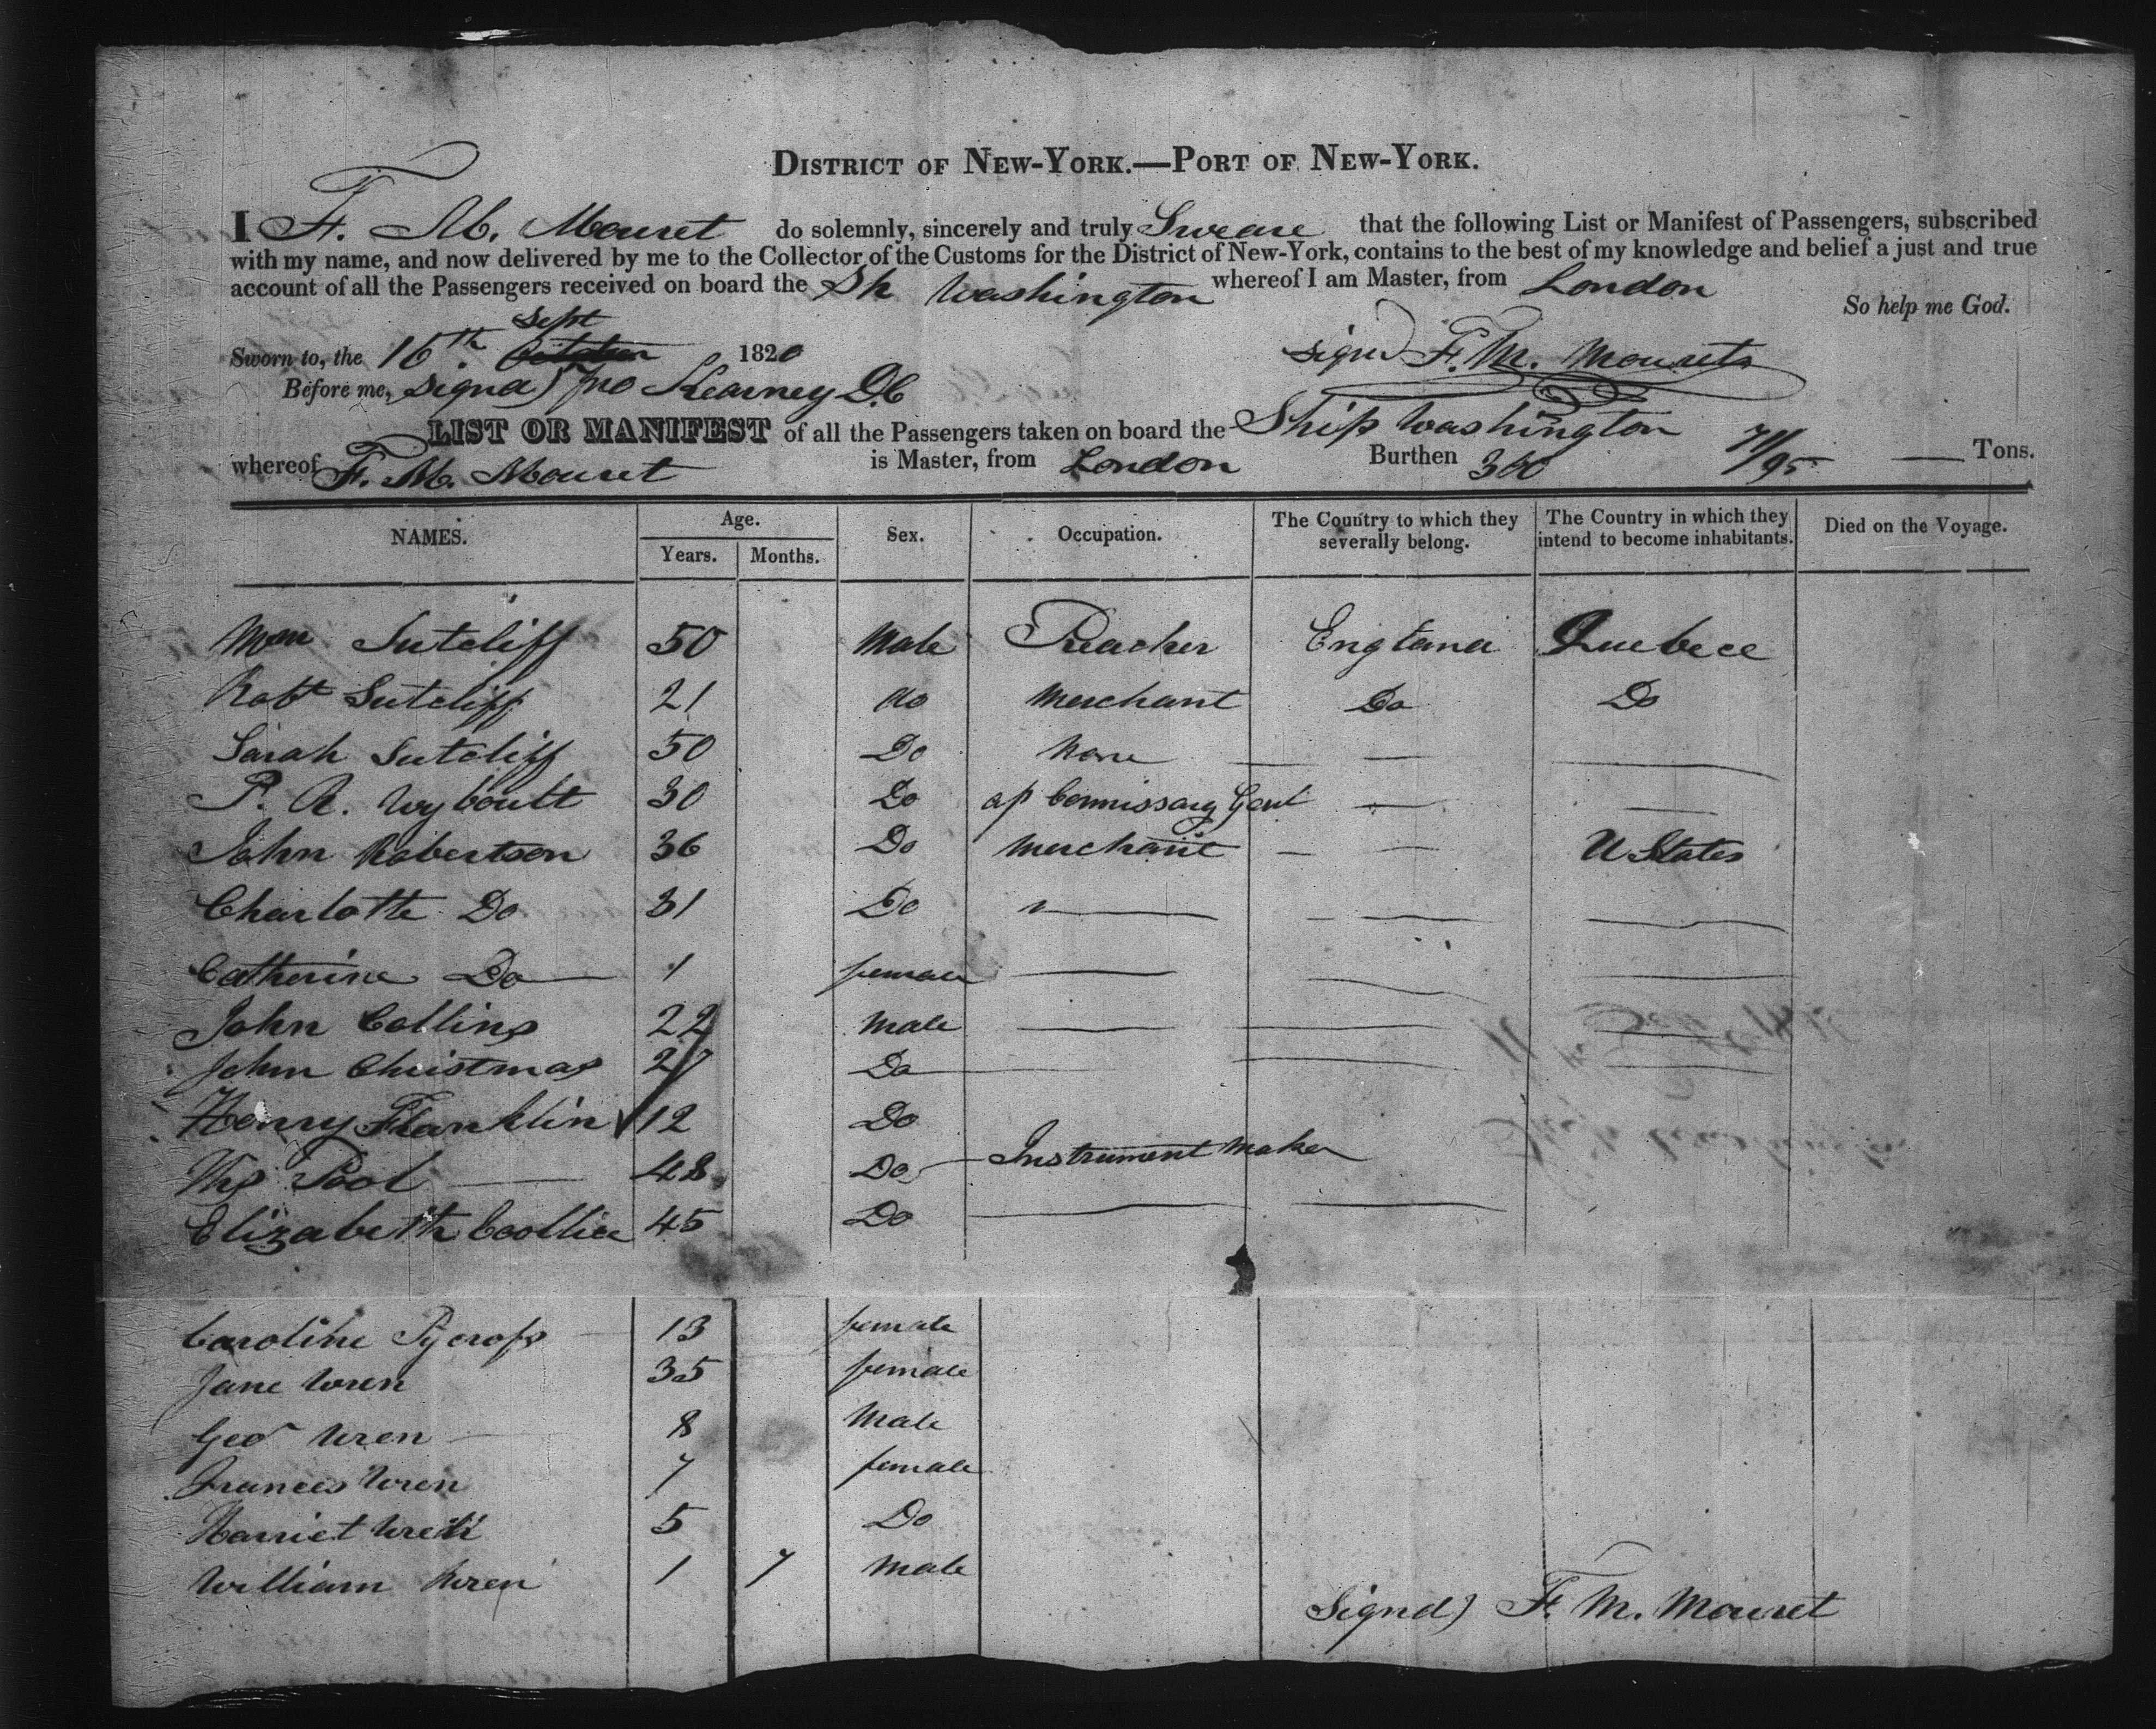 DISTRICT OF NEW-YORK.—PORT OF NEW-YORK.
I F. M. Mouret do solemnly, sincerely and truly Sweare that the following List or Manifest of Passengers, subscribed
with my name, and now delivered by me to the Collector of the Customs for the District of New-York, contains to the best of my knowledge and belief a just and true
account of all the Passengers received on board the Sh Washington whereof I am Master, from London
So help me God.
Sept
Sworn to, the 16th October 1820 signd F. M. Mouret
Before me, Signd) Jno Kearney D.C
LIST OR MANIFEST of all the Passengers taken on board the Ship Washington
whereof F. M. Mouret is Master, from London Burthen 71/95 Tons.
NAMES. Age. Years. Months. Sex. Occupation. The Country to which they severally belong. The Country in which they intend to become inhabitants. Died on the Voyage.
Sutcliff 50 Male Preacher England Quebece
Robt Sutcliff 21 do Merchant Do Do
Sarah Sutcliff 50 Do None — —
P. R. Wyboult 30 Do Commissary Genl — —
John Robertson 36 Do Merchant — — U States
Charlotte Do 31 Do — — — —
Catherine Do — 1 female — — —
John Collins 22 Male — — —
John Christmas 27 Do — — —
Henry Franklin 12 Do
Ths Pool — 48 Do — Instrument Maker
Elizabeth 45 Do — —
Caroline Pycroft — 13 female
Jane Wren 35 female
Geo Wren — 8 Male
Frances Wren 7 female
Harriet Wren 5 Do
William Wren 1 7 Male
Signd) F. M. Mouret